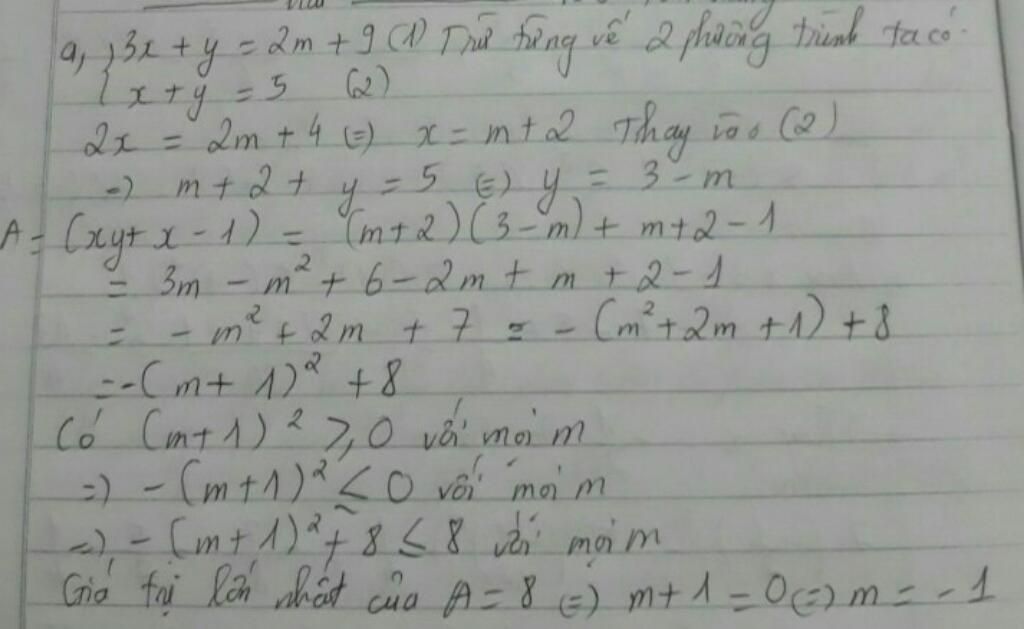 a, { 3x + y = 2m + 9 (1) Trừ từng vế 2 phương trình ta có.
x + y = 5 (2)
2x = 2m + 4 (=) x = m + 2 Thay vào (2)
=) m + 2 + y = 5 (=) y = 3 - m
A = (xy + x - 1) = (m+2)(3-m) + m+2 - 1
= 3m - m² + 6 - 2m + m + 2 - 1
= - m² + 2m + 7 = - (m² + 2m + 1) + 8
= - (m + 1)² + 8
Có (m+1)² ≥ 0 với mọi m
=) - (m+1)² ≤ 0 với mọi m
=) - (m+1)² + 8 ≤ 8 với mọi m
Giá trị lớn nhất của A = 8 (=) m + 1 = 0 (=) m = - 1